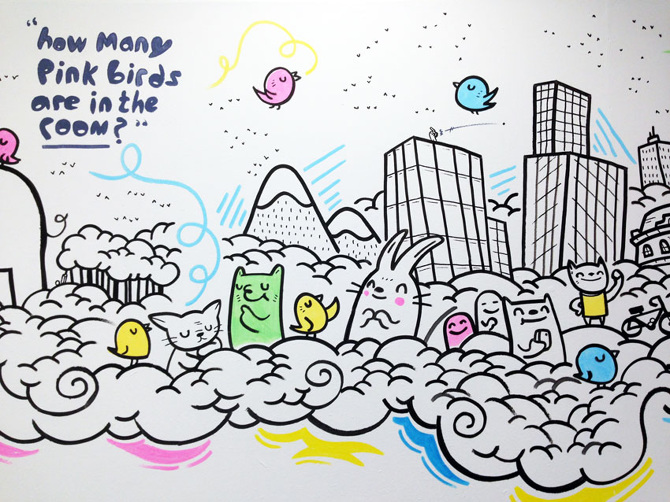 "how Many
Pink birds
are in the
room?"